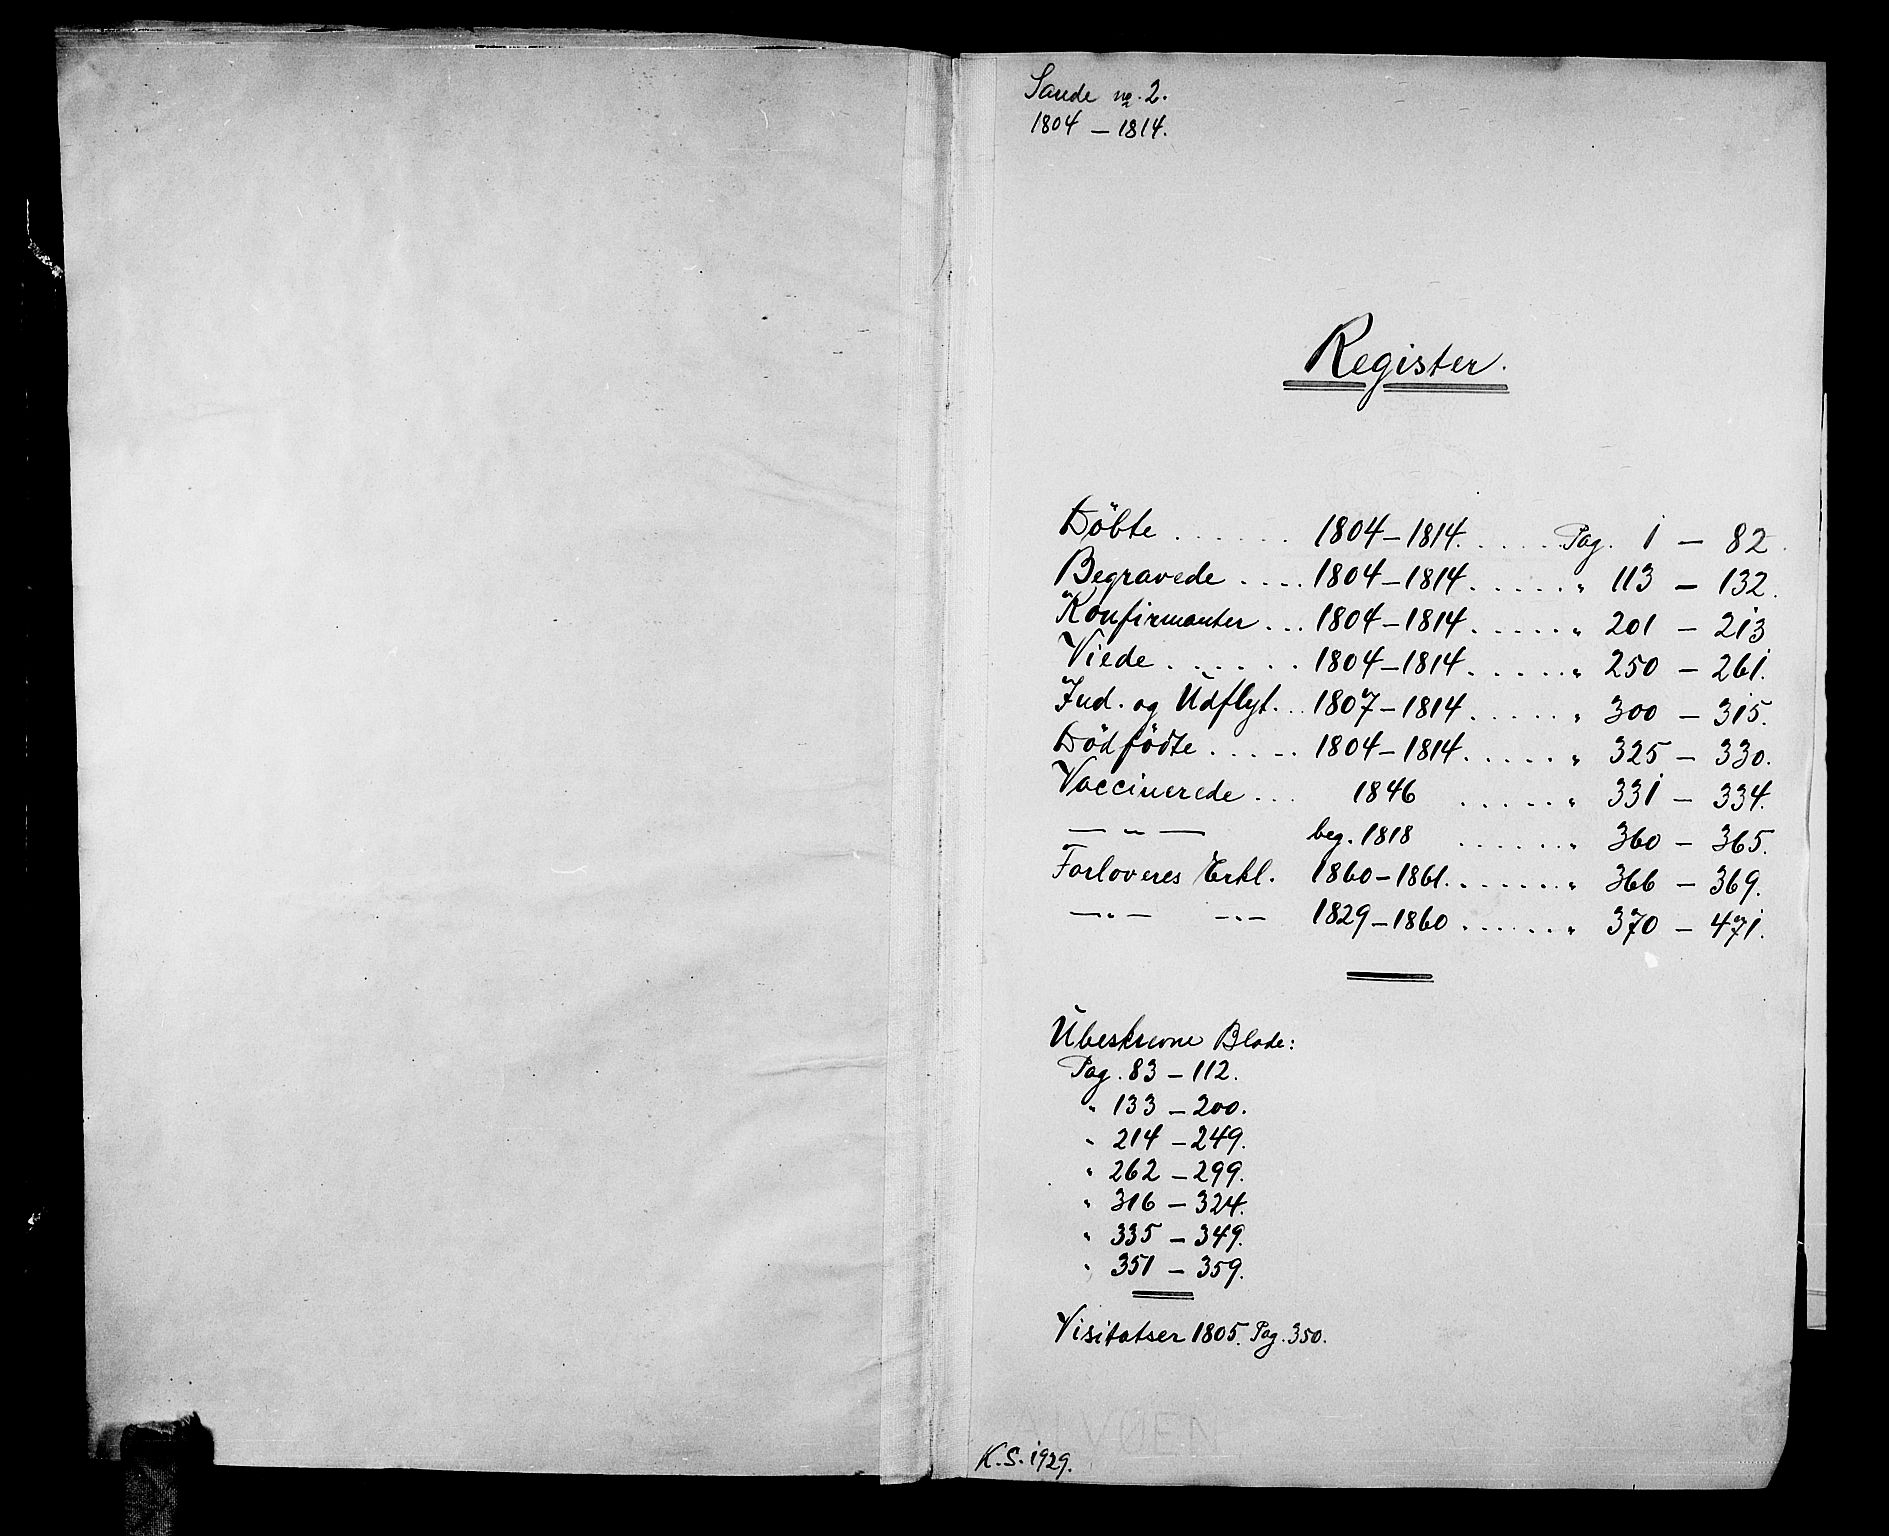 Sande no. 2.
1804 – 1814.
Register.
Döbte ...... 1804–1814. ..... Pag. 1 – 82.
Begravede .... 1804–1814. ..... " 113 – 132.
Konfirmanter ... 1804–1814. ..... " 201 – 213
Viede ...... 1804–1814. ..... " 250 – 261.
Ind. og Udflyt. .. 1807–1814. ..... " 300 – 315.
Dödfödte ..... 1804–1814. ..... " 325 – 330.
Vaccinerede ... 1846 ...... " 331 – 334.
— " — beg. 1818 ...... " 360 – 365.
Forloveres Erkl. 1860–1861. ...... " 366 – 369.
— " — — " — 1829–1860 ...... " 370 – 471.
Ubeskrevne Blade:
Pag. 83 – 112.
" 133 – 200.
" 214 – 249.
" 262 – 299.
" 316 – 324.
" 335 – 349.
" 351 – 359.
Visitatser 1805. Pag. 350.
VØEN
K.S. 1929.